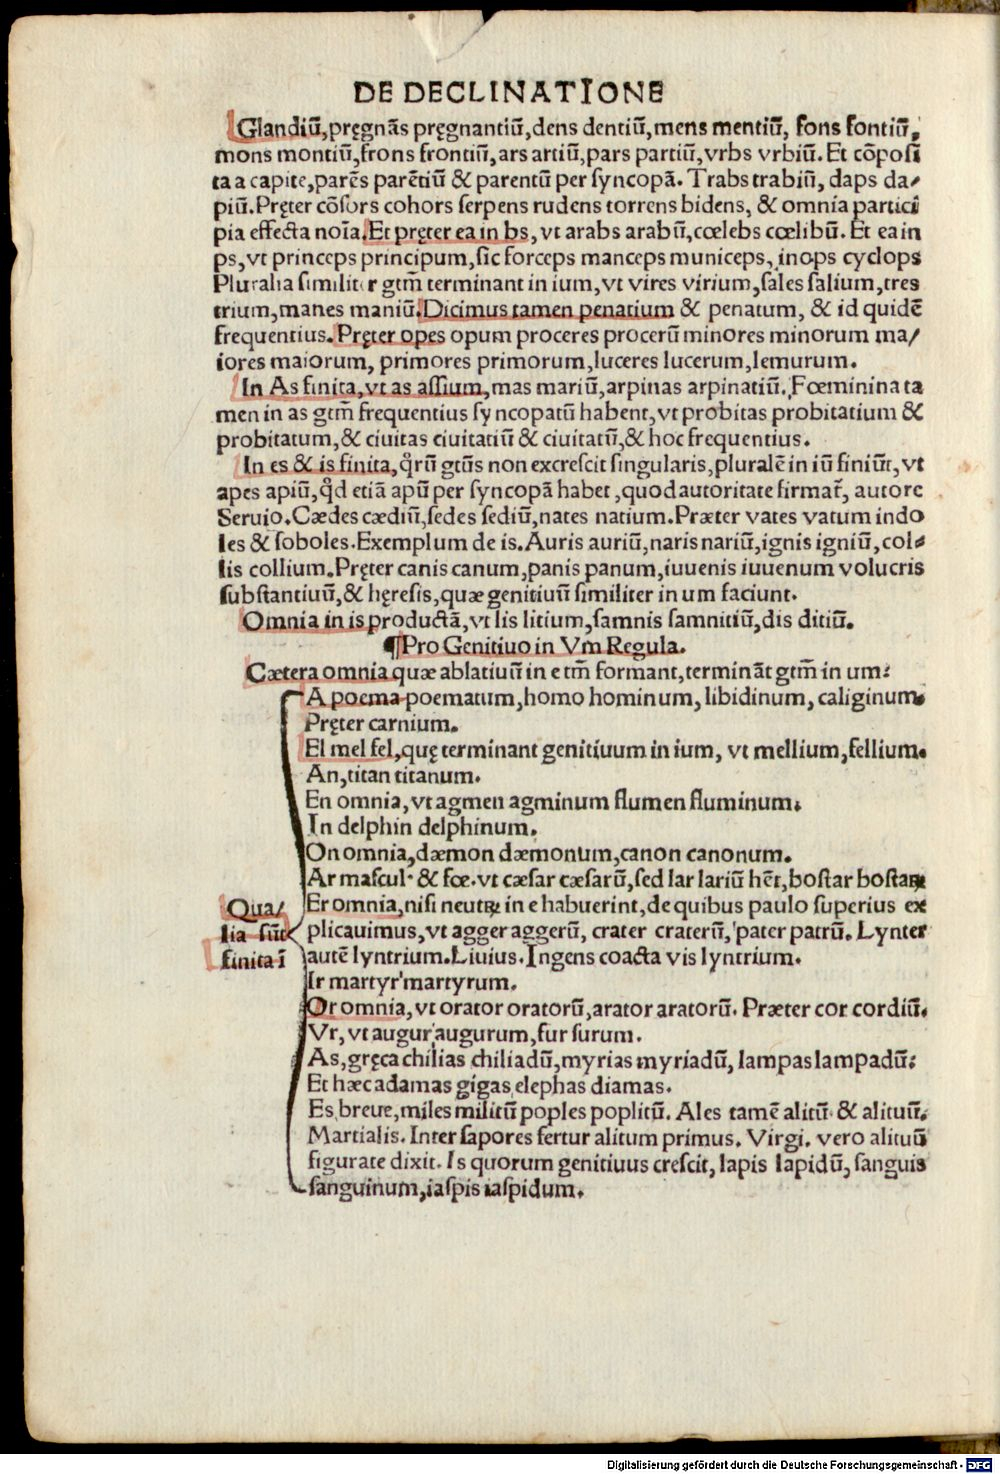 DE DECLINATIONE
Glandiū, pręgnās pręgnantiū, dens dentiū, mens mentiū, fons fontiū,
mons montiū, frons frontiū, ars artiū, pars partiū, vrbs vrbiū. Et cōpoſi
ta a capite, parēs parētiū & parentū per ſyncopā. Trabs trabiū, daps da⸗
piū. Pręter cōſors cohors ſerpens rudens torrens bidens, & omnia partici
pia effecta noīa. Et pręter ea in bs, vt arabs arabū, cœlebs cœlibū. Et ea in
ps, vt princeps principum, ſic forceps manceps municeps, inops cyclops
Pluralia ſimiliter gtm̄ terminant in ium, vt vires virium, ſales ſalium, tres
trium, manes maniū. Dicimus tamen penatium & penatum, & id quidē
frequentius. Pręter opes opum proceres procerū minores minorum ma/
iores maiorum, primores primorum, luceres lucerum, lemurum.
In As finita, vt as aſſium, mas mariū, arpinas arpinatiū. Fœminina ta
men in as gtm̄ frequentius ſyncopatū habent, vt probitas probitatium &
probitatum, & ciuitas ciuitatiū & ciuitatū, & hoc frequentius.
In es & is finita, q̄rū gtūs non excreſcit ſingularis, pluralē in iū finiūt, vt
apes apiū, qd̄ etiā apū per ſyncopā habet, quod autoritate firmat᷑, autore
Seruio. Cædes cædiū, ſedes ſediū, nates natium. Præter vates vatum indo
les & ſoboles. Exemplum de is. Auris auriū, naris nariū, ignis igniū, col⸗
lis collium. Pręter canis canum, panis panum, iuuenis iuuenum volucris
ſubſtantiuū, & hęreſis, quæ genitiuū ſimiliter in um faciunt.
Omnia in is productā, vt lis litium, ſamnis ſamnitiū, dis ditiū.
¶Pro Genitiuo in Vm Regula.
Cætera omnia quæ ablatiuū in e tm̄ formant, termināt gtm̄ in um:
A poema poematum, homo hominum, libidinum, caliginum.
Pręter carnium.
El mel fel, quę terminant genitiuum in ium, vt mellium, fellium.
An, titan titanum.
En omnia, vt agmen agminum flumen fluminum.
In delphin delphinum.
On omnia, dæmon dæmonum, canon canonum.
Ar maſcul. & fœ. vt cæſar cæſarū, ſed lar lariū hēt, boſtar boſtaꝝ
Qua/
lia ſūt
finita ī
Er omnia, niſi neutꝝ in e habuerint, de quibus paulo ſuperius ex
plicauimus, vt agger aggerū, crater craterū, pater patrū. Lynter
autē lyntrium. Liuius. Ingens coacta vis lyntrium.
Ir martyr martyrum.
Or omnia, vt orator oratorū, arator aratorū. Præter cor cordiū.
Vr, vt augur augurum, fur furum.
As, gręca chilias chiliadū, myrias myriadū, lampas lampadū:
Et hæc adamas gigas elephas diamas.
Es breue, miles militū poples poplitū. Ales tamē alitū & alituū.
Martialis. Inter ſapores fertur alitum primus. Virgi. vero alituū
figurate dixit. Is quorum genitiuus creſcit, lapis lapidū, ſanguis
ſanguinum, iaſpis iaſpidum.
Digitalisierung gefördert durch die Deutsche Forschungsgemeinschaft - DFG